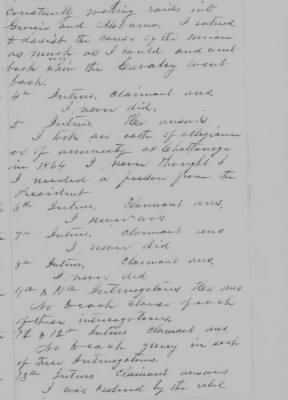 constantly making raids into
Georgia and Alabama. I intend
to assist the cause of the Union
as much as I could and went
back when the Cavalry went
back.
4th Interro, Claimant ans.
I never did.
5 Interro, He answers
I took an oath of allegiance
or of amnesty at Chattanooga
in 1864 I never thought I
I needed a pardon from the
President
6th Interro, Claimant ans.
I never was
7th Interro, Claimant ans
I never did
8th Interro, Claimant ans.
I never did
9th & 10th Interrogatories He ans
No to each clause of each
of these interrogatories.
& 12th Interro Claimant ans.
No to each query in each
of these Interrogatories.
13th Interro Claimant answers
I was by the rebel